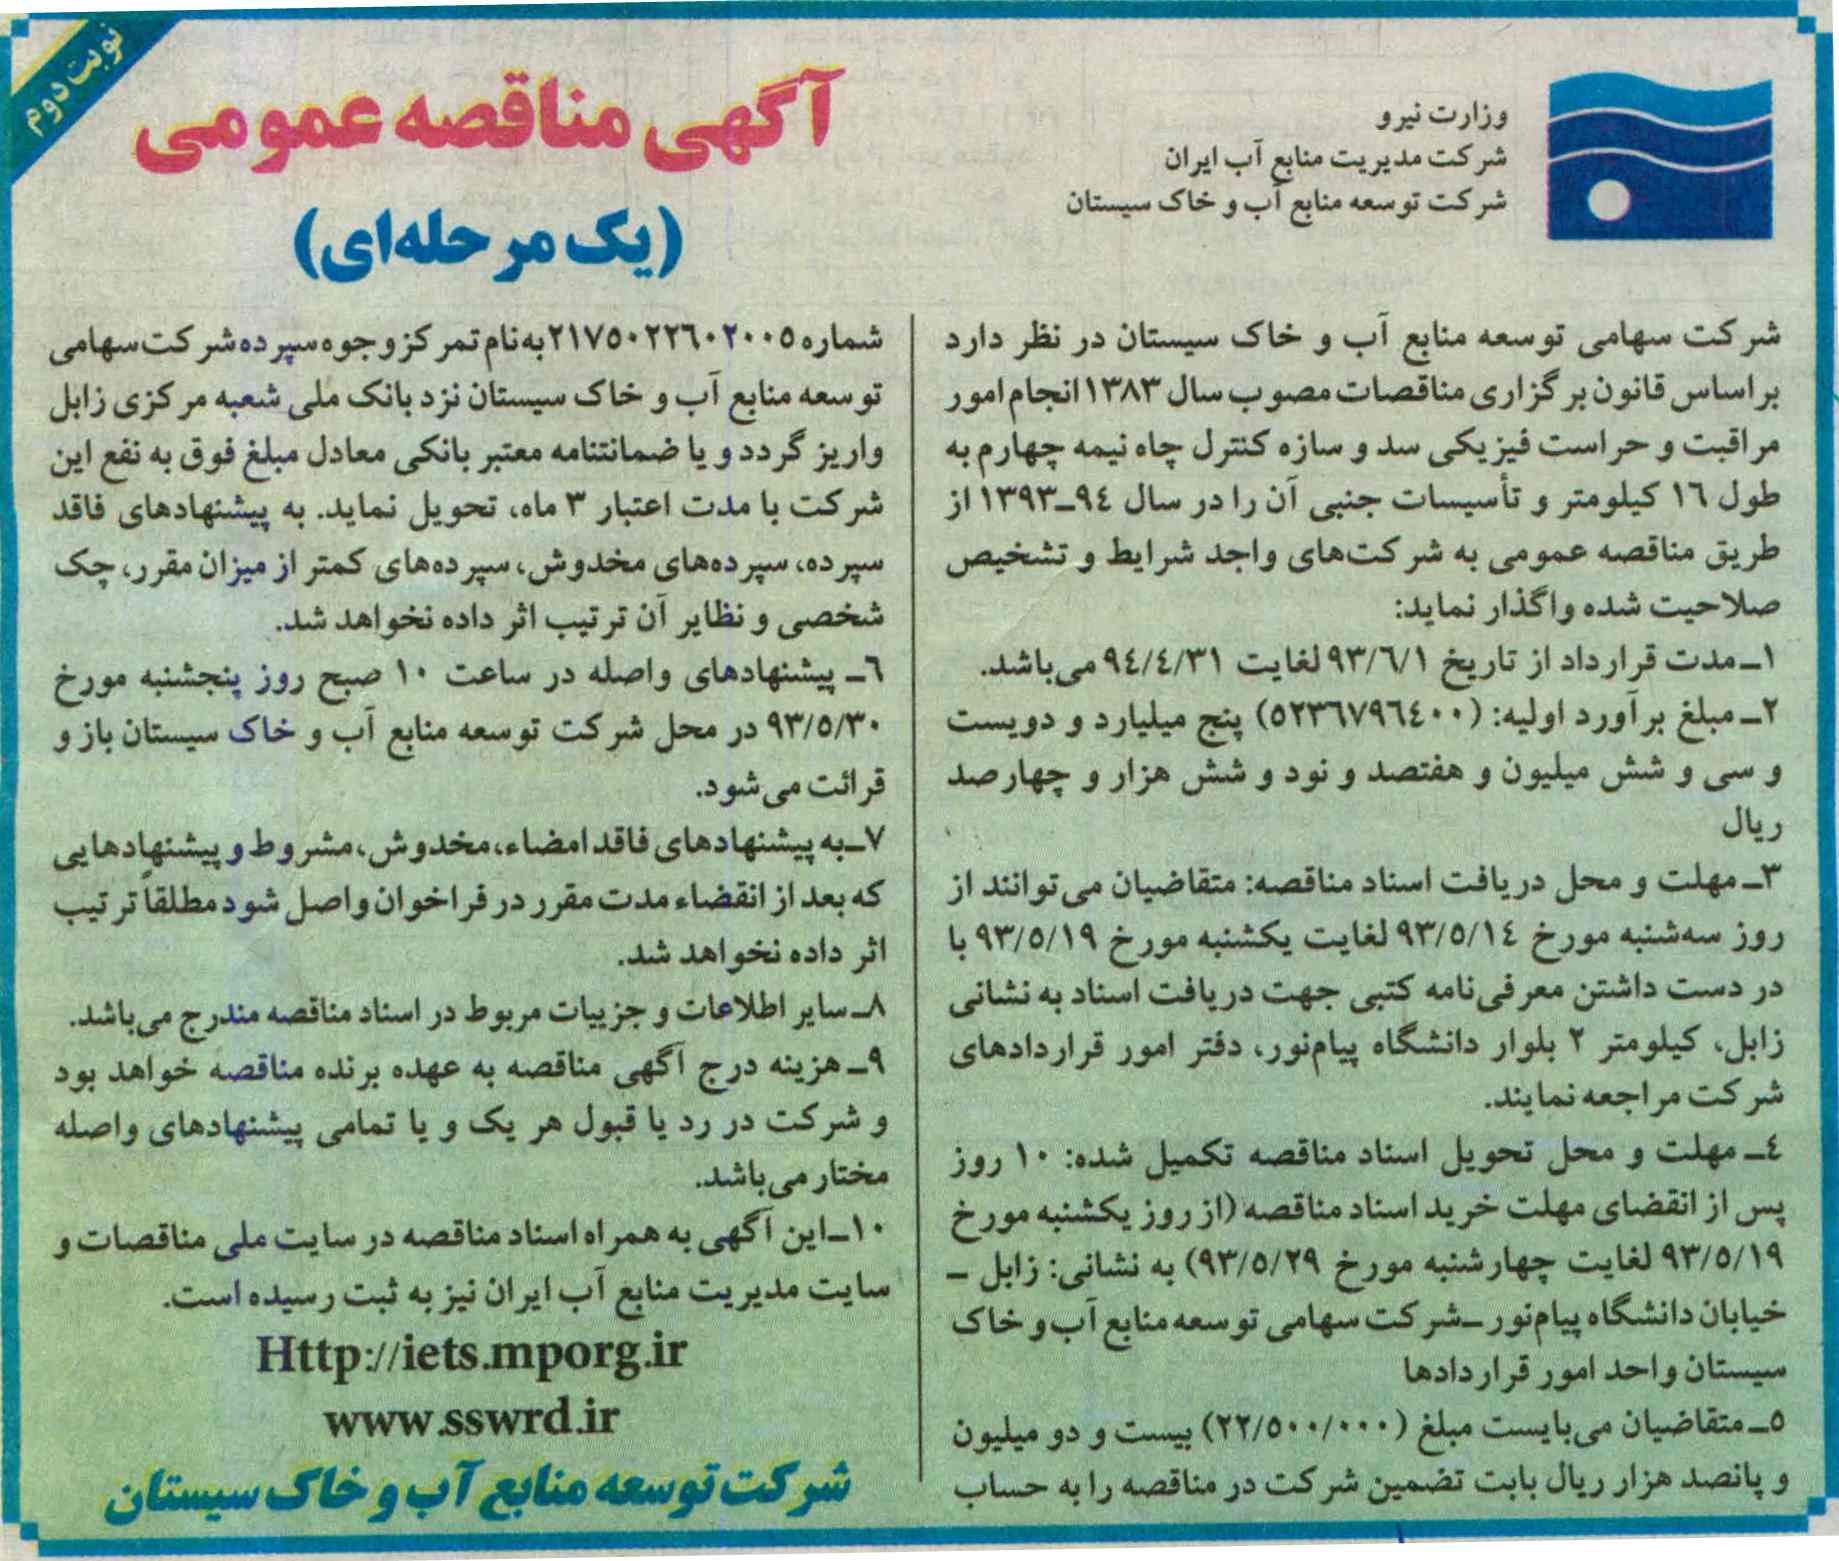 نوبت دوم
وزارت نیرو
شرکت مدیریت منابع آب ایران
شرکت توسعه منابع آب و خاک سیستان
آگهی مناقصه عمومی
(یک مرحله‌ای)
شرکت سهامی توسعه منابع آب و خاک سیستان در نظر دارد
براساس قانون برگزاری مناقصات مصوب سال ۱۳۸۳ انجام امور
مراقبت و حراست فیزیکی سد و سازه کنترل چاه نیمه چهارم به
طول ۱۶ کیلومتر و تأسیسات جنبی آن را در سال ۹۴ـ۱۳۹۳ از
طریق مناقصه عمومی به شرکت‌های واجد شرایط و تشخیص
صلاحیت شده واگذار نماید:
۱ـ مدت قرارداد از تاریخ ۹۳/۶/۱ لغایت ۹۴/۴/۳۱ می‌باشد.
۲ـ مبلغ برآورد اولیه: (۵۲۳۶۷۹۶۴۰۰) پنج میلیارد و دویست
و سی و شش میلیون و هفتصد و نود و شش هزار و چهارصد
ریال
۳ـ مهلت و محل دریافت اسناد مناقصه: متقاضیان می‌توانند از
روز سه‌شنبه مورخ ۹۳/۵/۱۴ لغایت یکشنبه مورخ ۹۳/۵/۱۹ با
در دست داشتن معرفی‌نامه کتبی جهت دریافت اسناد به نشانی
زابل، کیلومتر ۲ بلوار دانشگاه پیام‌نور، دفتر امور قراردادهای
شرکت مراجعه نمایند.
۴ـ مهلت و محل تحویل اسناد مناقصه تکمیل شده: ۱۰ روز
پس از انقضای مهلت خرید اسناد مناقصه (از روز یکشنبه مورخ
۹۳/۵/۱۹ لغایت چهارشنبه مورخ ۹۳/۵/۲۹) به نشانی: زابل ـ
خیابان دانشگاه پیام‌نور ـ شرکت سهامی توسعه منابع آب و خاک
سیستان واحد امور قراردادها
۵ـ متقاضیان می‌بایست مبلغ (۲۲/۵۰۰/۰۰۰) بیست و دو میلیون
و پانصد هزار ریال بابت تضمین شرکت در مناقصه را به حساب
شماره ۲۱۷۵۰۲۲۶۰۲۰۰۵ به نام تمرکز وجوه سپرده شرکت سهامی
توسعه منابع آب و خاک سیستان نزد بانک ملی شعبه مرکزی زابل
واریز گردد و یا ضمانتنامه معتبر بانکی معادل مبلغ فوق به نفع این
شرکت با مدت اعتبار ۳ ماه، تحویل نماید. به پیشنهادهای فاقد
سپرده، سپرده‌های مخدوش، سپرده‌های کمتر از میزان مقرر، چک
شخصی و نظایر آن ترتیب اثر داده نخواهد شد.
۶ـ پیشنهادهای واصله در ساعت ۱۰ صبح روز پنجشنبه مورخ
۹۳/۵/۳۰ در محل شرکت توسعه منابع آب و خاک سیستان باز و
قرائت می‌شود.
۷ـ به پیشنهادهای فاقد امضاء، مخدوش، مشروط و پیشنهادهایی
که بعد از انقضاء مدت مقرر در فراخوان واصل شود مطلقاً ترتیب
اثر داده نخواهد شد.
۸ـ سایر اطلاعات و جزییات مربوط در اسناد مناقصه مندرج می‌باشد.
۹ـ هزینه درج آگهی مناقصه به عهده برنده مناقصه خواهد بود
و شرکت در رد یا قبول هر یک و یا تمامی پیشنهادهای واصله
مختار می‌باشد.
۱۰ـ این آگهی به همراه اسناد مناقصه در سایت ملی مناقصات و
سایت مدیریت منابع آب ایران نیز به ثبت رسیده است.
Http://iets.mporg.ir
www.sswrd.ir
شرکت توسعه منابع آب و خاک سیستان